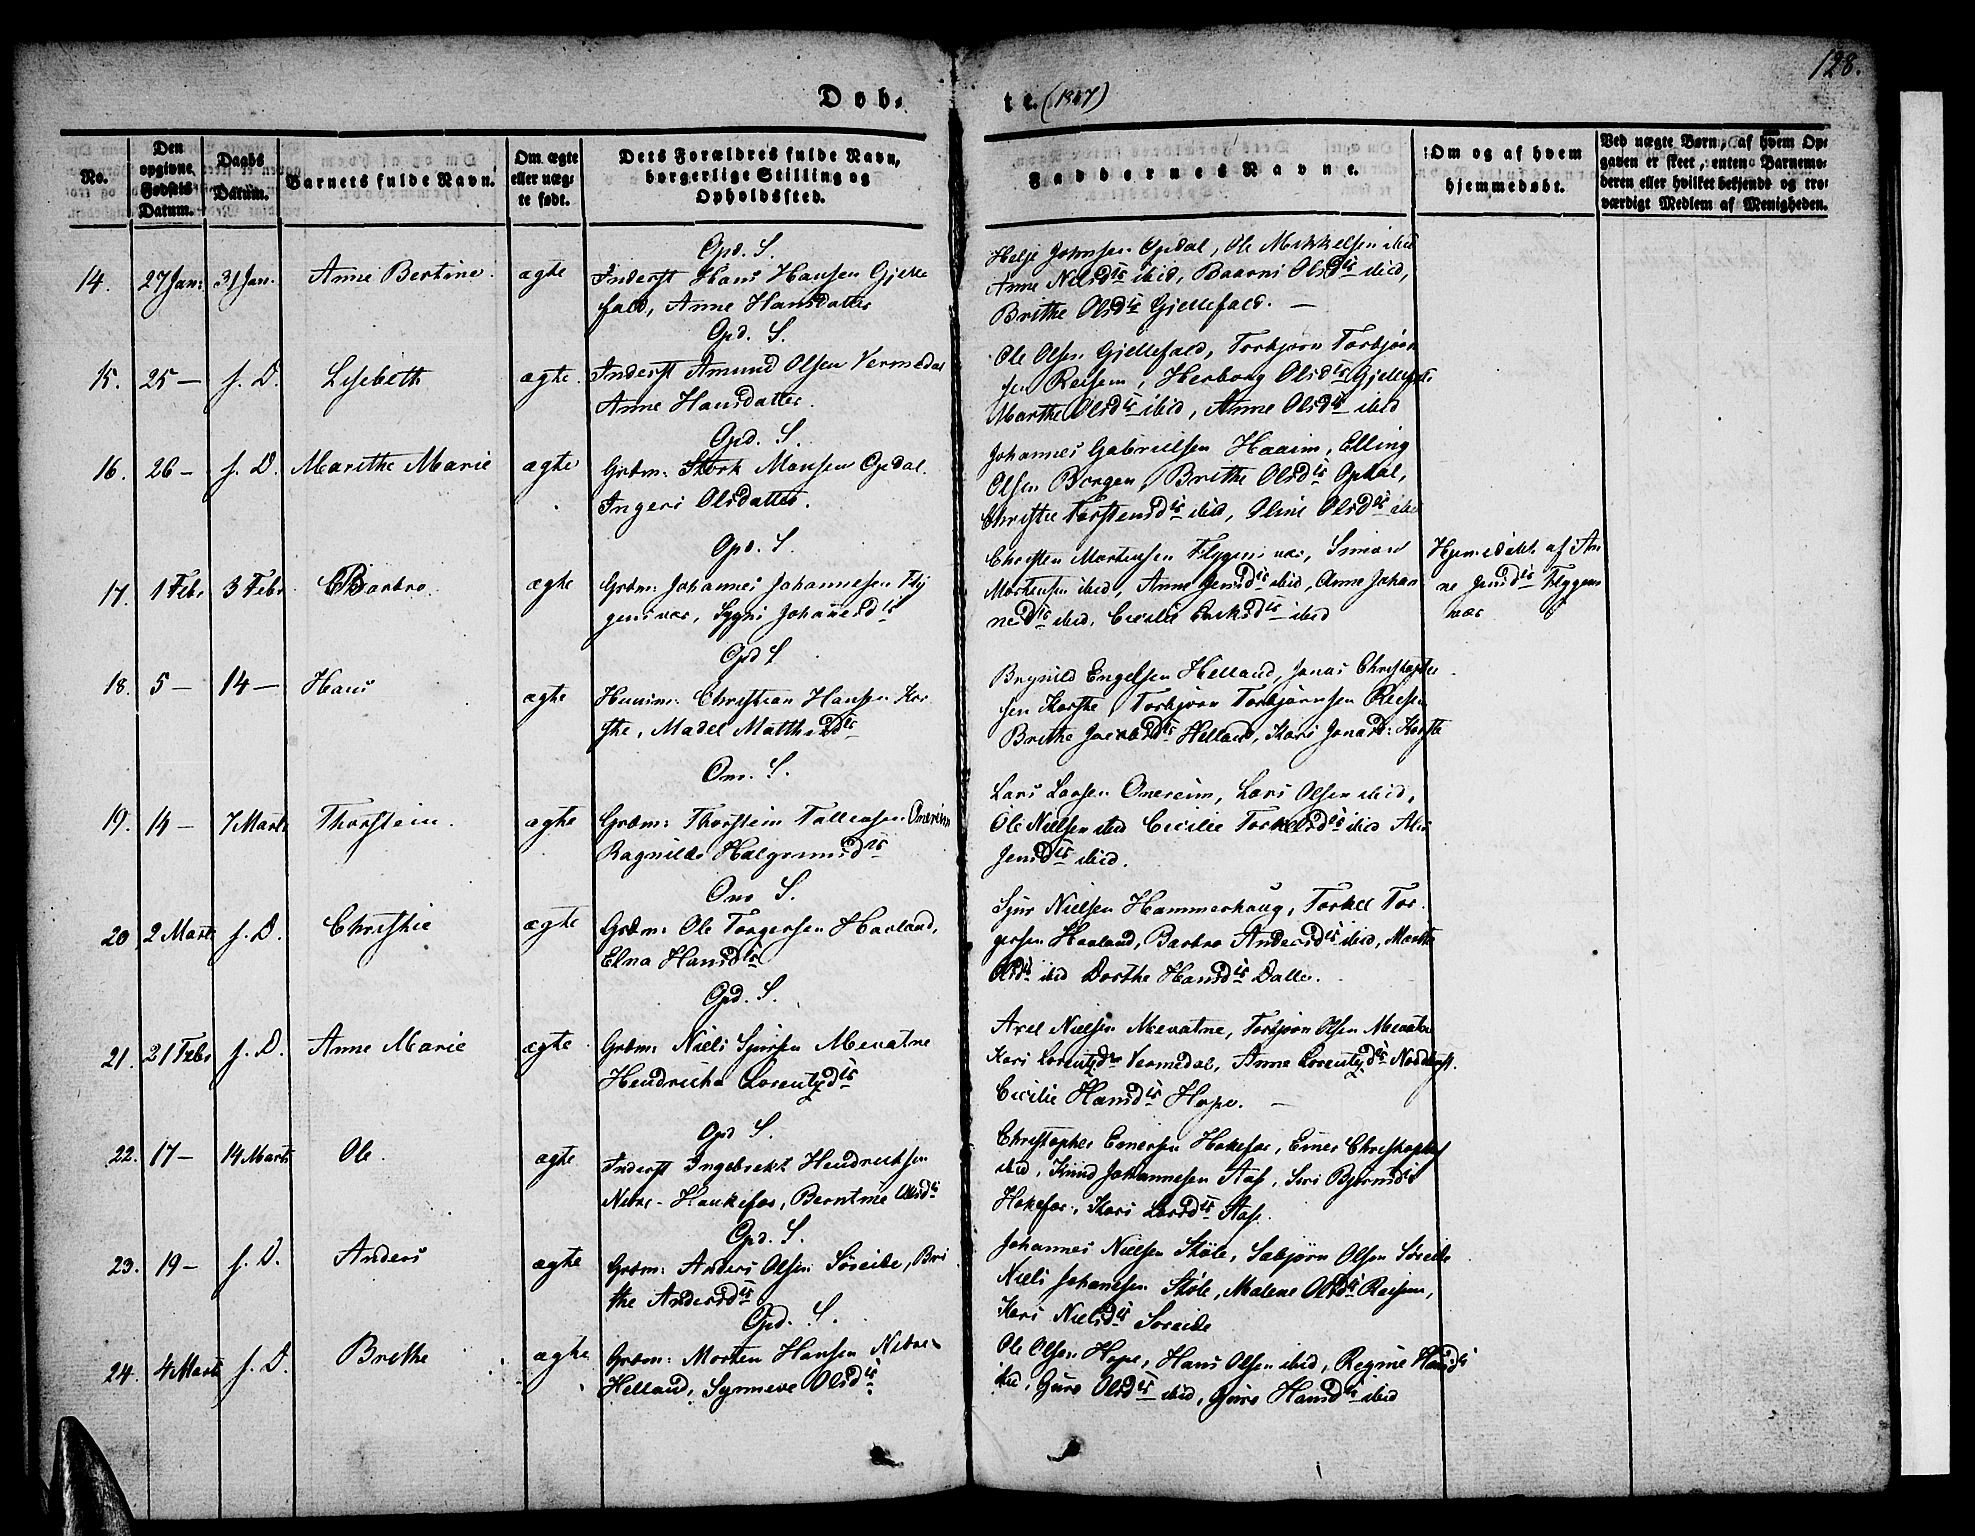 128.
Døb-
te. (1847)
No.
Den opgivne Fødsels Datum.
Daabs Datum.
Barnets fulde Navn.
Om ægte eller uægte født.
Dets Forældres fulde Navn, borgerlige Stilling og Opholdssted.
Faddernes Navne.
Om og af hvem hjemmedøbt.
Ved uægte Børn, af hvem Opgaven er skeet, enten Barnemoderen eller hvilket bekjendt og troværdigt Medlem af Menigheden.
Opd. S.
14. 27 Jan: 31 Jan. Anne Bertine. ægte Inderst Hans Hansen Gjelle
fald, Anne Hansdatter
Helje Johnsen Opdal, Ole Mikkelsen ibid
Anne Nelsdtr ibid, Baarni Olsdtr ibid,
Brithe Olsdtr Gjellefald. —
Opd. S.
15. 25 — s. D. Lisebeth ægte. Inderst Amund Olsen Vermedal
Anne Hansdatter.
Ole Olsen Gjellefald, Torbjørn Torbjørn
sen Reisem, Herborg Olsdtr Gjellef
Marthe Olsdtr ibid, Anne Olsdtr ibid
Opd. S.
16. 26 — s. D. Marithe Marie ægte Grdm: Stork Monsen Opdal.
Ingeri Olsdatter.
Johannes Gabrielsen Haaim, Elling
Olsen Borgen, Brithe Olsdtr Opdal,
Christie Torstensdtr ibid, Oline Olsdtr ibid
Opd. S.
17. 1 Febr 3 Febr Barbro. ægte Grdm: Johannes Johannesen Flyg
gensvær, Sygni Johanesdtr
Christen Mortensen Flygensvær, Simon
Mortensen ibid, Anne Jensdtr ibid, Anne Johan
nesdtr ibid, Cecilie Eriksdtr ibid
Hjemedøbt af An
ne Jensdtr Flyggens
vær
Opd S
18. 5 — 14 — Hans ægte Huusm: Christian Hansen Kor
sthe, Madel Matthisdtr
Brynild Engelsen Helland, Jonas Christopher
sen Korsthe, Torbjørn Torbjørnsen Reesen
Brithe Jacobsdtr Helland, Kari Jonasd: Korsthe
Onr. S.
19. 14 — 7 Marts Thorstein. ægte Grdm: Thorstein Tollevsen Onereim
Ragnilde Halgrimsdtr
Lars Larsen Onereim, Lars Olsen ibid,
Ole Nielsen ibid Cecilie Torkelsdtr ibid
Jensdtr ibid.
Onr S.
20 2 Marts s. D. Christie ægte Grdm: Ole Torgersen Havland,
Elna Hansdtr
Sjur Nielsen Hammerhaug, Torkel Tor
gersen Havland, Barbro Andersdtr ibid, Marthe
Olsdtr ibid Dorthe Hansdtr Dalle.
Opd. S.
21. 21 Febr s. D. Anne Marie ægte Grdm: Niels Sjursen Mevatne
Hendricha Lorentzdtr
Axel Nielsen Mevatne, Torbjørn Olsen Mevatne
Kari Lorentzdtr Vermedal, Anne Lorentzdtr
Cecilie Hansdtr Hope. —
Opd S.
22. 17 — 14 Marts Ole. ægte Inderst Ingebrekt Hendricksen
Nedre-Haukefær, Berntine Olsdtr
Christopher Emersen Hokefær, Emer Christophers
ibid, Knud Johannesen Aase, Siri Bjørnsdtr
Hokefær, Kari Larsdtr Aase.
Opd. S.
23. 19 — s. D. Anders ægte Grdm: Anders Olsen Søreide, Bri
the Andersdtr
Johannes Nielsen Støle, Sabjørn Olsen Søreide
Niels Johanesen Støle, Malene Olsdtr Reesem,
Kari Nielsdtr Søreide
Opd. S.
24. 4 Marts s. D. Brithe ægte Grdm: Morten Hansen Nedre-
Helland, Synneve Olsdtr
Ole Olsen Hope, Hans Olsen ibid, Regine Hansdtr
ibid, Guro Olsdtr ibid, Guro Hansdtr ibid